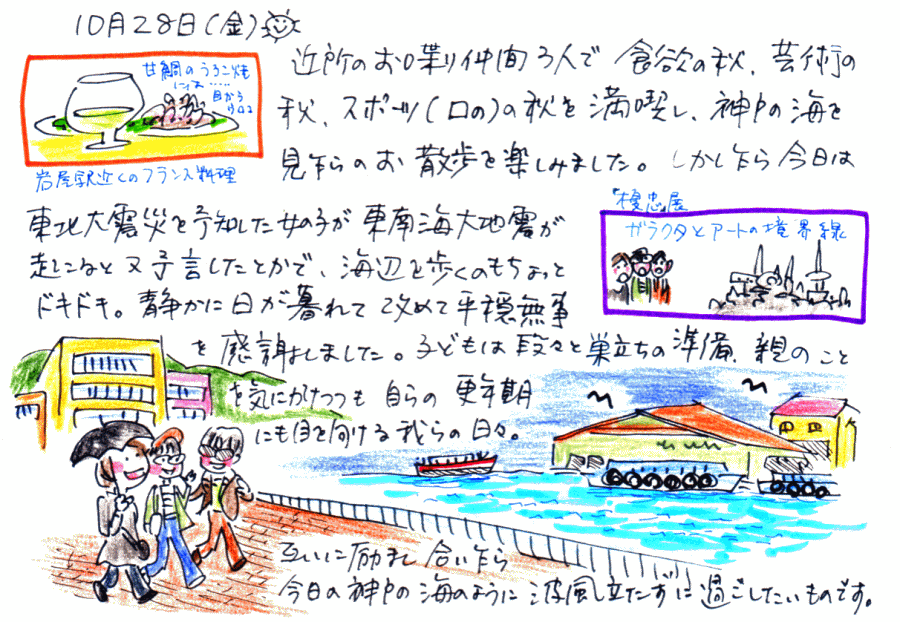 10月28日(金)
甘鯛のうろこ焼
には……
目からウロコ
岩屋駅近くのフランス料理
近所のお喋り仲間3人で 食欲の秋、芸術の
秋、スポーツ(口の)の秋を満喫し、神戸の海を
見ながらのお散歩を楽しみました。しかしながら今日は
東北大震災を予知した女の子が東南海大地震が
起こると又予言したとかで、海辺を歩くのもちょっと
ドキドキ。静かに日が暮れて改めて平穏無事
を感謝しました。子どもは段々と巣立ちの準備、親のこと
を気にかけつつも自らの更年期
にも目を向ける我らの日々。
「榎忠」展
ガラクタとアートの境界線
互いに励まし合いながら
今日の神戸の海のように波風立たずに過ごしたいものです。